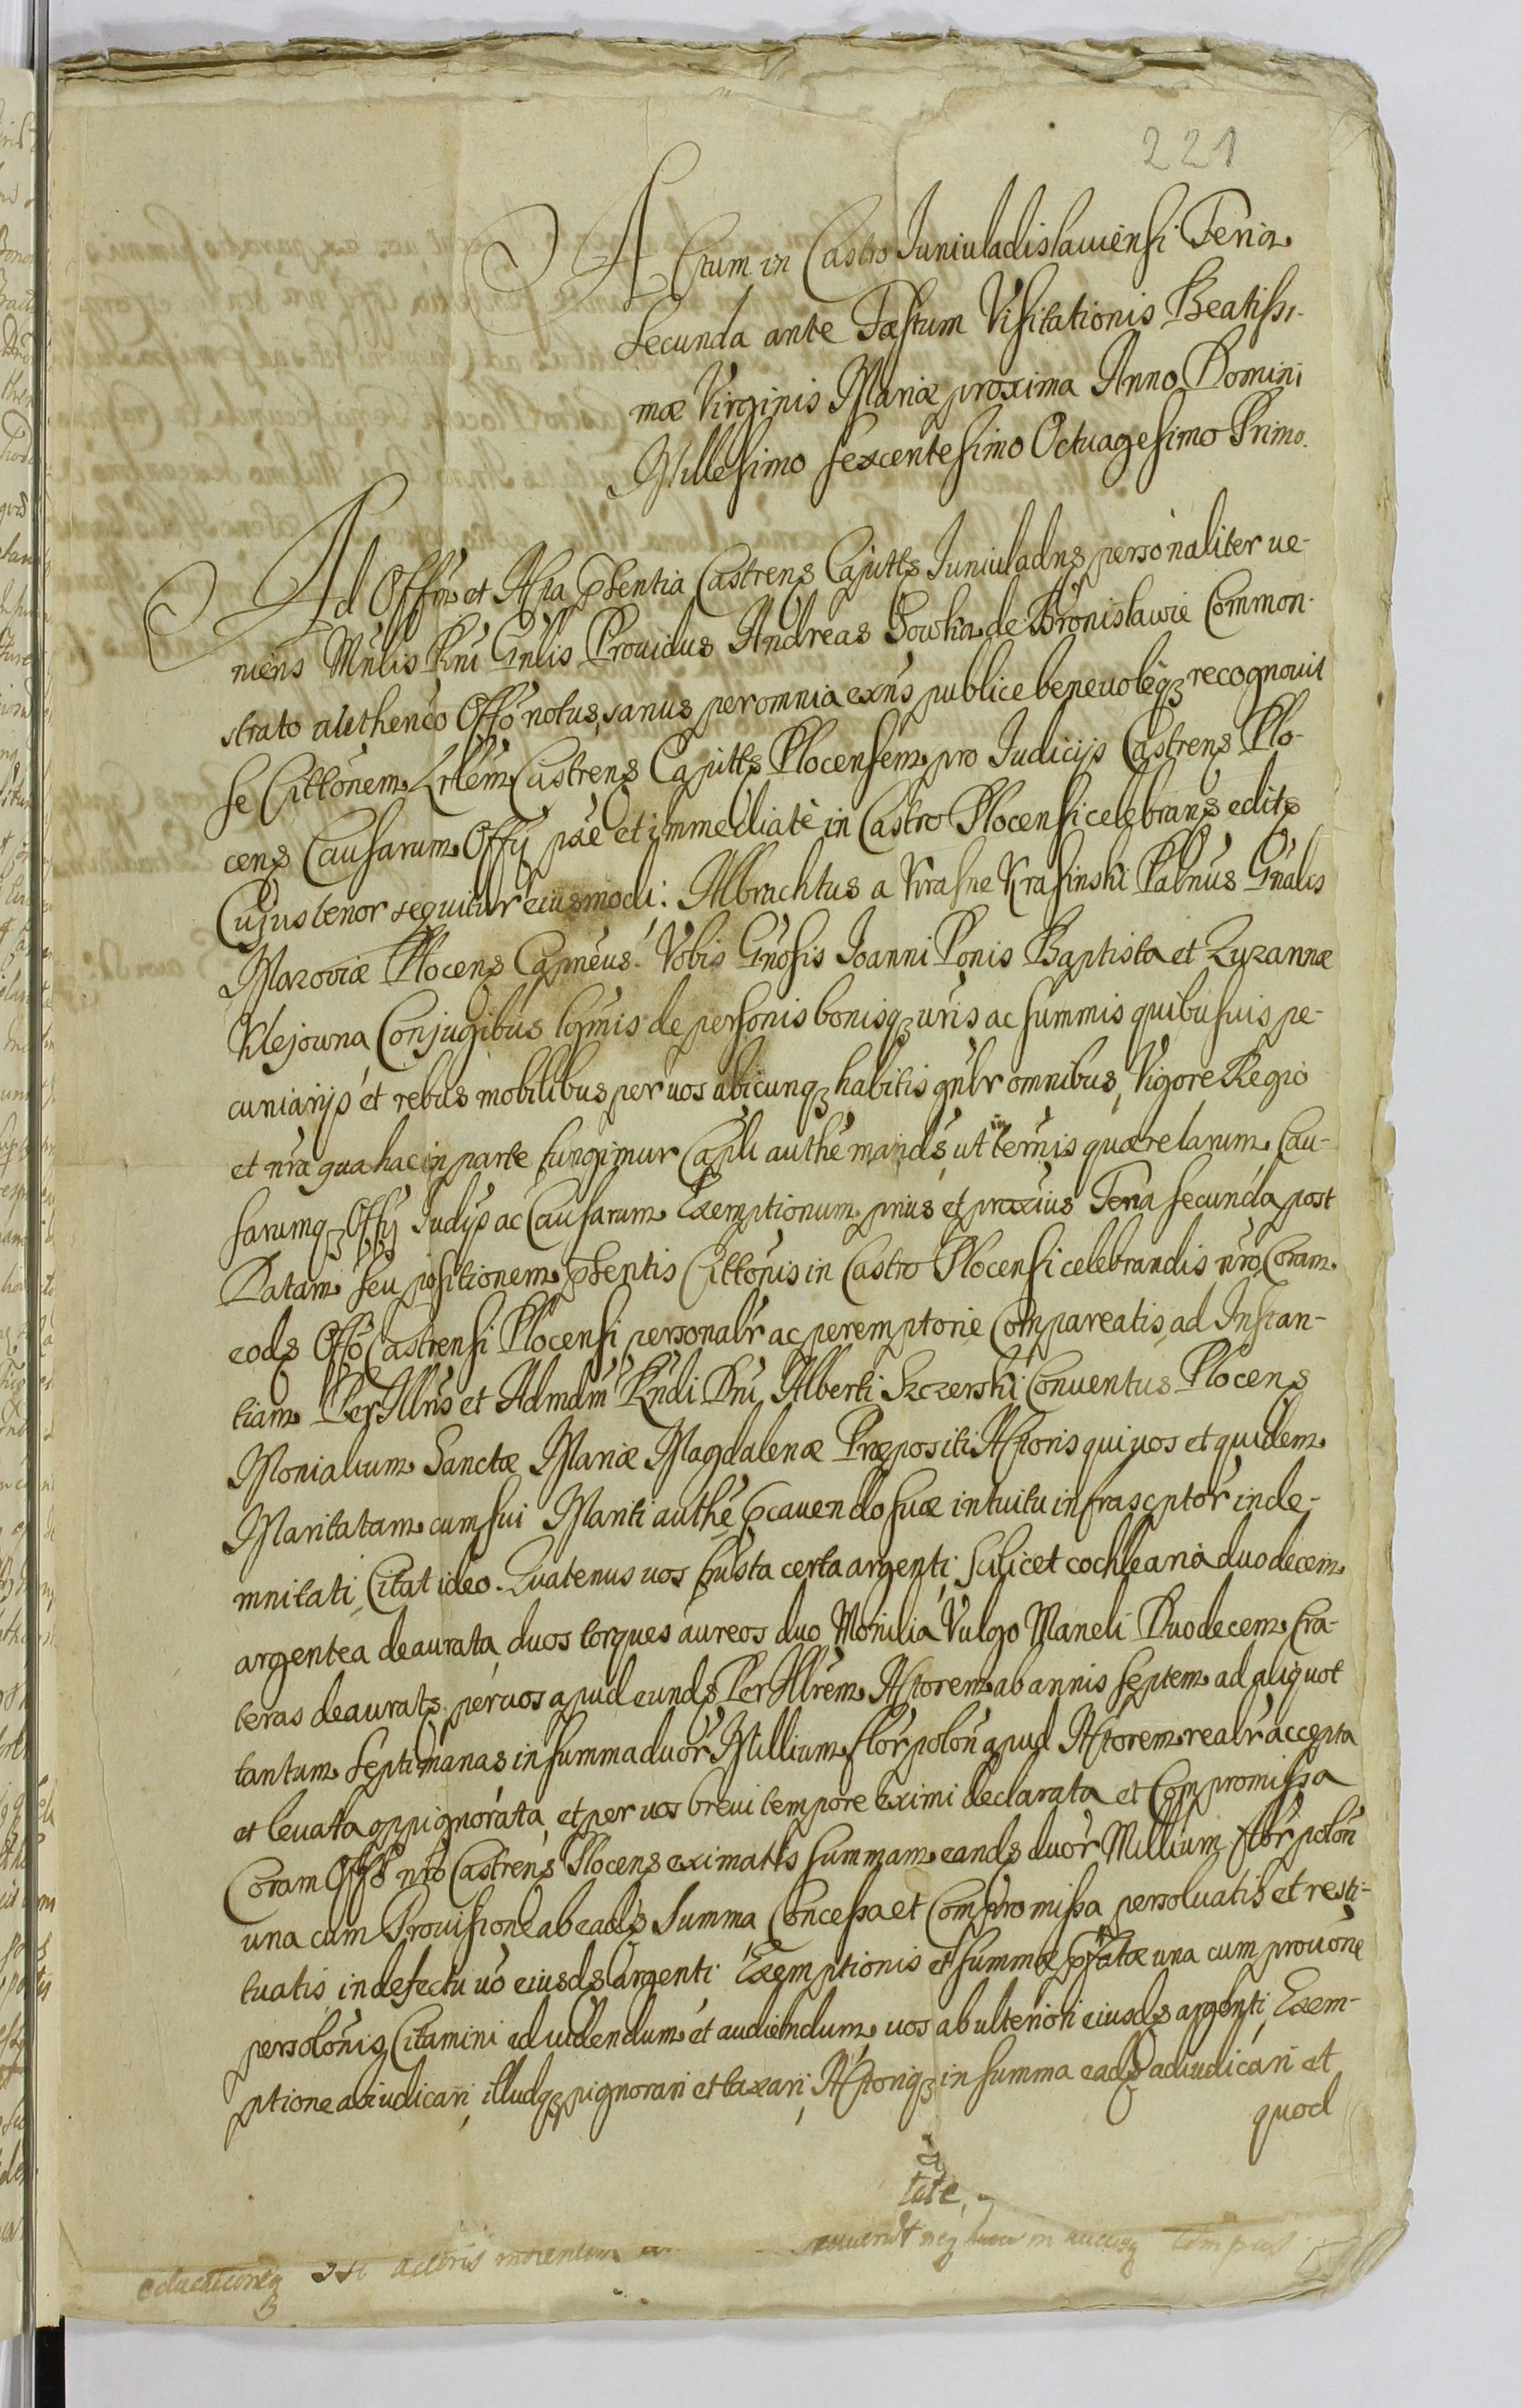 221
Actum in Castro Iuniuladislauiensi Feria
Secunda ante Fæstum Visitationis Beatissi-
mæ Virginis Mariæ proxima Anno Domini
Millesimo sexcentesimo Octuagesimo Primo.
Ad Offm et Acta pñtia Castrens Capitlis Iuniuladns personaliter ue-
niens Mñlis Rni Gnlis Prouidus Andreas Sowka de Bronislawie Common-
strato authenco Offo notus, sanus per omnia exns publice beneuoleqz recognouit
se Cittõnem Lrlem Castrens Capitlis Plocensem pro Iudicijs Castrens Plo-
cens Causarum Offij põe et immediatè in Castro Plocensi celebrans edits
Cujus tenor sequitur eiusmodi: Albrachtus a Krasne Krasinski Palnus Gnalis
Mazoviæ Plocens Capneus. Vobis Gnosis Ioanni Ponis Baptista et Zuzannæ
Klejowna Conjugibus lgmis de personis bonisqz uris ac summis quibusuis pe-
cuniarijs et rebus mobilibus per uos ubicunqz habitis gnlr omnibus, Vigore Regio
et nrã qua hac in parte fungimur Capli authẽ mands, ut in termis quærelarum Cau-
sarumqz Offij Iudijs ac Causarum Exemptionum prius et proxius Feria secunda post
Datam seu positionem pñtis Cittõnis in Castro Plocensi celebrandis nro Coram
eods Offo Castrensi Plocensi personalr ac peremptorie Compareatis ad Instan-
tiam Per Illris et Admdm Rndi Dni Alberti Szczerski Conuentus Plocens
Monialium Sanctæ Mariæ Magdalenæ Præpositi Actoris qui uos et quidem
Maritatam cum sui Mariti authẽ præcauendo suæ intuitu infrascptor inde-
mnitati, Citat ideo. Quatenus uos frusta certa argenti, scilicet cochlearia duodecem
argentea deaurata, duos torques aureos duo Monilia, Vulgo Maneli Duodecem Cra-
teras deaurats per uos apud eunds Per Illrem Actorem ab annis septem ad aliquot
tantum septimanas in summa duor Millium flor polon apud Actorem realr accepta
et leuata oppignorata, et per uos breui tempore eximi declarata et Compromissa
Coram Offo nro Castrens Plocens eximatis summam eands duor Millium flor polon
una cum Prouisione ab eads Summa Concessa et Compromissa persoluatis et resti-
tuatis, in defectu uo eiusds argenti Exemptionis et summæ pfatæ una cum prouone
persolonis, Citamini ad uidendum et audiendum uos ab ulteriori eiusds argenti Exem-
ptione abiudicari, illudqz pignorari et taxari, Actoriqz in summa eads adiudicari et
quod
tate,
actoris
tempus